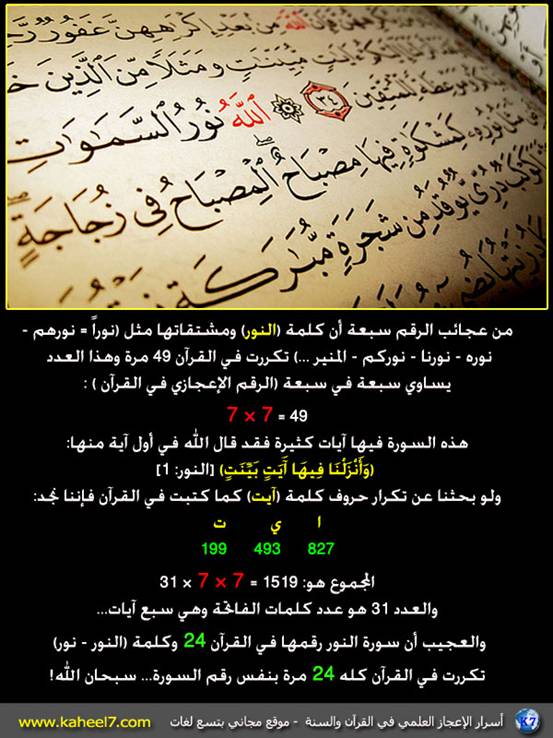 ٱللَّهَ مِنۢ بَعۡدِ إِكۡرَٰهِهِنَّ غَفُورٞ
مُّبَيِّنَٰتٖ وَمَثَلٗا مِّنَ ٱلَّذِينَ
وَمَوۡعِظَةٗ لِّلۡمُتَّقِينَ ٣٤ ۞ ٱللَّهُ نُورُ ٱلسَّمَٰوَٰتِ
نُورِهِۦ كَمِشۡكَوٰةٖ فِيهَا مِصۡبَاحٌۖ ٱلۡمِصۡبَاحُ فِي زُجَاجَةٍۖ
دُرِّيّٞ يُوقَدُ مِن شَجَرَةٖ مُّبَٰرَكَةٖ
من عجائب الرقم سبعة أن كلمة (النور) ومشتقاتها مثل (نوراً = نورهم -
نوره - نورنا - نوركم - المنير ...) تكررت في القرآن 49 مرة وهذا العدد
يساوي سبعة في سبعة (الرقم الإعجازي في القرآن ) :
49 = 7 × 7
هذه السورة فيها آيات كثيرة فقد قال الله في أول آية منها:
(وَأَنْزَلْنَا فِيهَا آَيَتٍ بَيِّنَتٍ) [النور: 1]
ولو بحثنا عن تكرار حروف كلمة (آيت) كما كتبت في القرآن فإننا نجد:
ا ي ت
827 493 199
المجموع هو: 1519 = 7 × 7 × 31
والعدد 31 هو عدد كلمات الفاتحة وهي سبع آيات...
والعجيب أن سورة النور رقمها في القرآن 24 وكلمة (النور - نور)
تكررت في القرآن كله 24 مرة بنفس رقم السورة... سبحان الله!
أسرار الإعجاز العلمي في القرآن والسنة - موقع مجاني بتسع لغات www.kaheel7.com K7